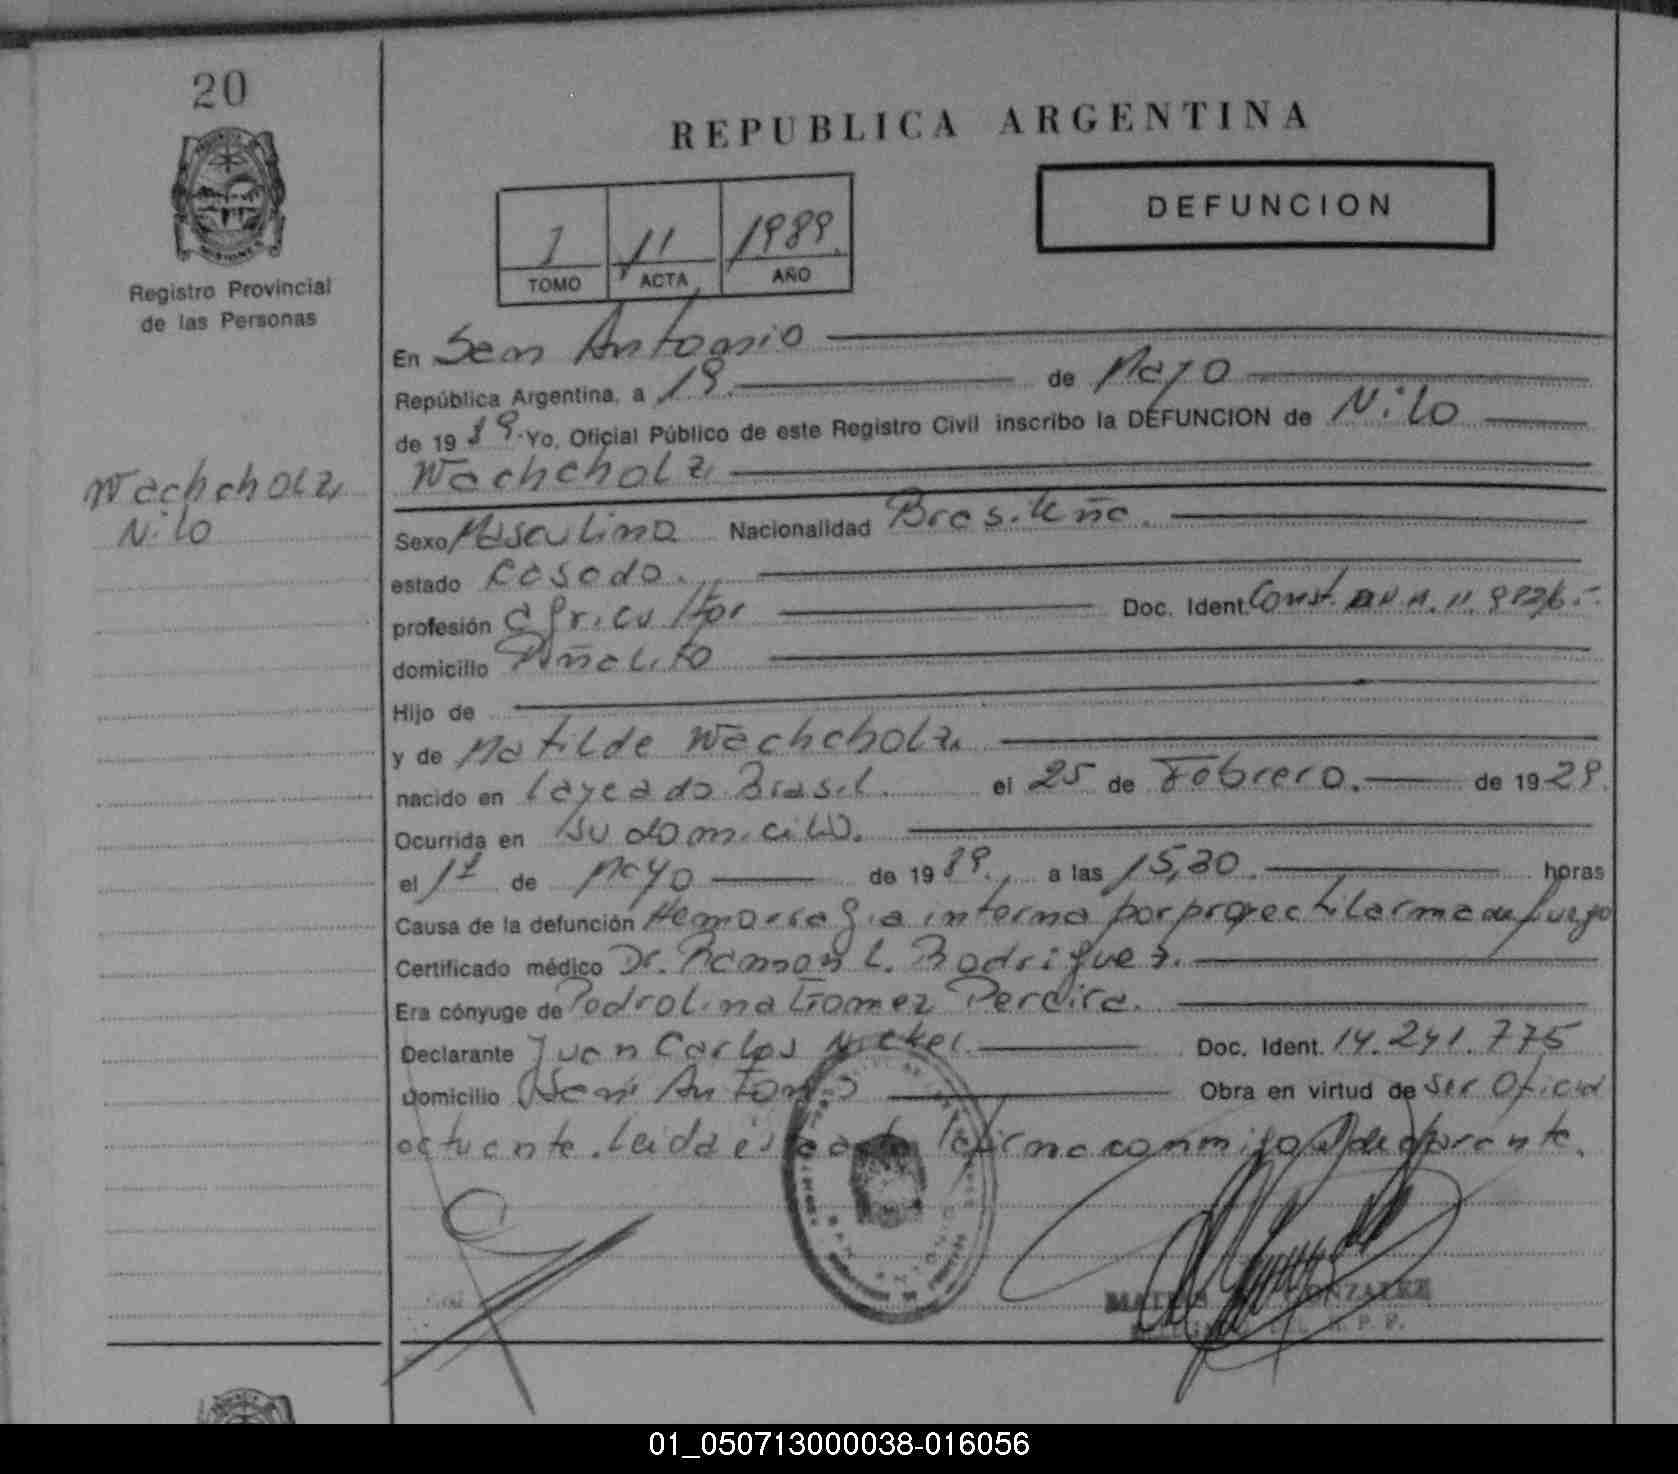 20
REPUBLICA ARGENTINA
DEFUNCION
1 11 1989
TOMO ACTA AÑO
Registro Provincial
de las Personas
En San Antonio
República Argentina, a 19 de Mayo
de 1989. Yo, Oficial Público de este Registro Civil inscribo la DEFUNCION de Nilo
Wachcholz
Wachcholz
Nilo
Sexo Masculino Nacionalidad Brasileña.
estado Casado.
profesión agricultor Doc. Ident. Const.
domicilio Piñalito
Hijo de
y de Matilde Wachcholz
nacido en Layeado Brasil. el 25 de Febrero. de 1929.
Ocurrida en su domicilio.
el 1º de Mayo de 1989. a las 15,30. horas
Causa de la defunción Hemorragia interna por proyectil arma de fuego
Certificado médico Dr. Ramon L. Rodriguez.
Era cónyuge de Pedrolina Gomez Pereira.
Declarante Juan Carlos Nickel. Doc. Ident. 14.241.775
Domicilio San Antonio Obra en virtud de ser Oficial
actuante. Leida esta acta la firma conmigo el declarante.
GONZALEZ
01_050713000038-016056